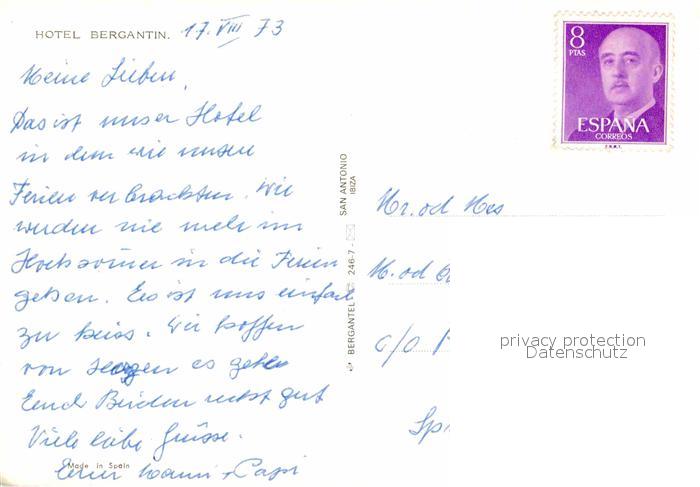 HOTEL BERGANTIN. 17. VIII 73
Meine Lieben,
Das ist unser Hotel
in dem wir unsere
Ferien verbrachten. Wir
werden nie mehr im
Hochsommer in die Ferien
gehen. Es ist uns einfach
zu heiss. Wir hoffen
von es gehe
Euch Beiden recht gut
Viele liebe Grüsse.
Made in Spain
Euer + Papi
BERGANTEL 246-7
SAN ANTONIO
IBIZA
8
PTAS
ESPAÑA
CORREOS
F.N.M.T.
Mr. od Mes
M. od
c/o
Sp
privacy protection
Datenschutz